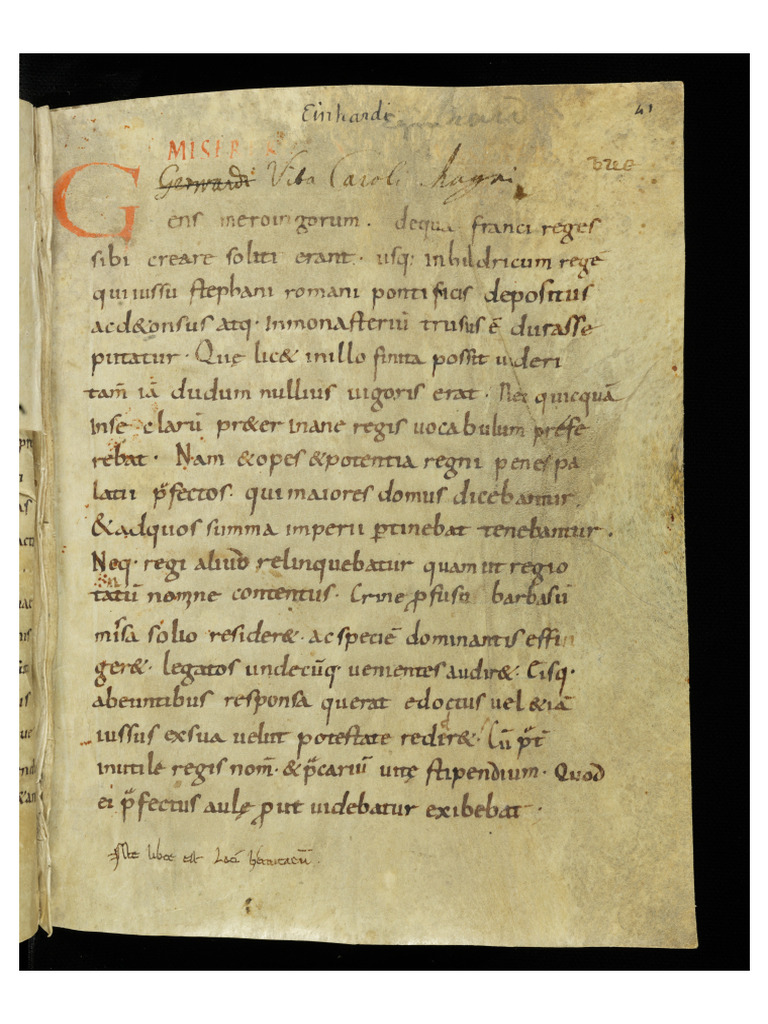 Einhardi
41
MISER
Gerwardi Vita Caroli Magni
G
ens meroingorum. dequa franci reges
sibi creare soliti erant. usq: inhildricum regē
quiiussu stephani romani pontificis depositus
acd&onsus atq. inmonasteriū trusus ē durasse
putatur. Quę lic& inillo finita possit videri
tam̄ iā dudum nullius vigoris erat. Nec quicquā
inse clarū pr&er inane regis vocabulum prefe
rebat. Nam &opes &potentia regni penes pa
latii p̄fectos. qui maiores domus dicebantur.
&adquos summa imperii ptinebat tenebantur.
Neq. regi aliud relinquebatur quam ut regio
tatū nomine contentus. Crine pfuso barbasū
misa solio resider&. ac speciē dominantis effin
ger&. legatos undecūq. venientes audir&. Eisq.
abeuntibus responsa querat edoctus vel &iā
iussus exsua velut potestate redir&. Cū p̄t
inutile regis nom̄. &p̄cariū vitę stipendium. Quod
ei p̄fectus aulę put videbatur exibebat.
Iste liber est